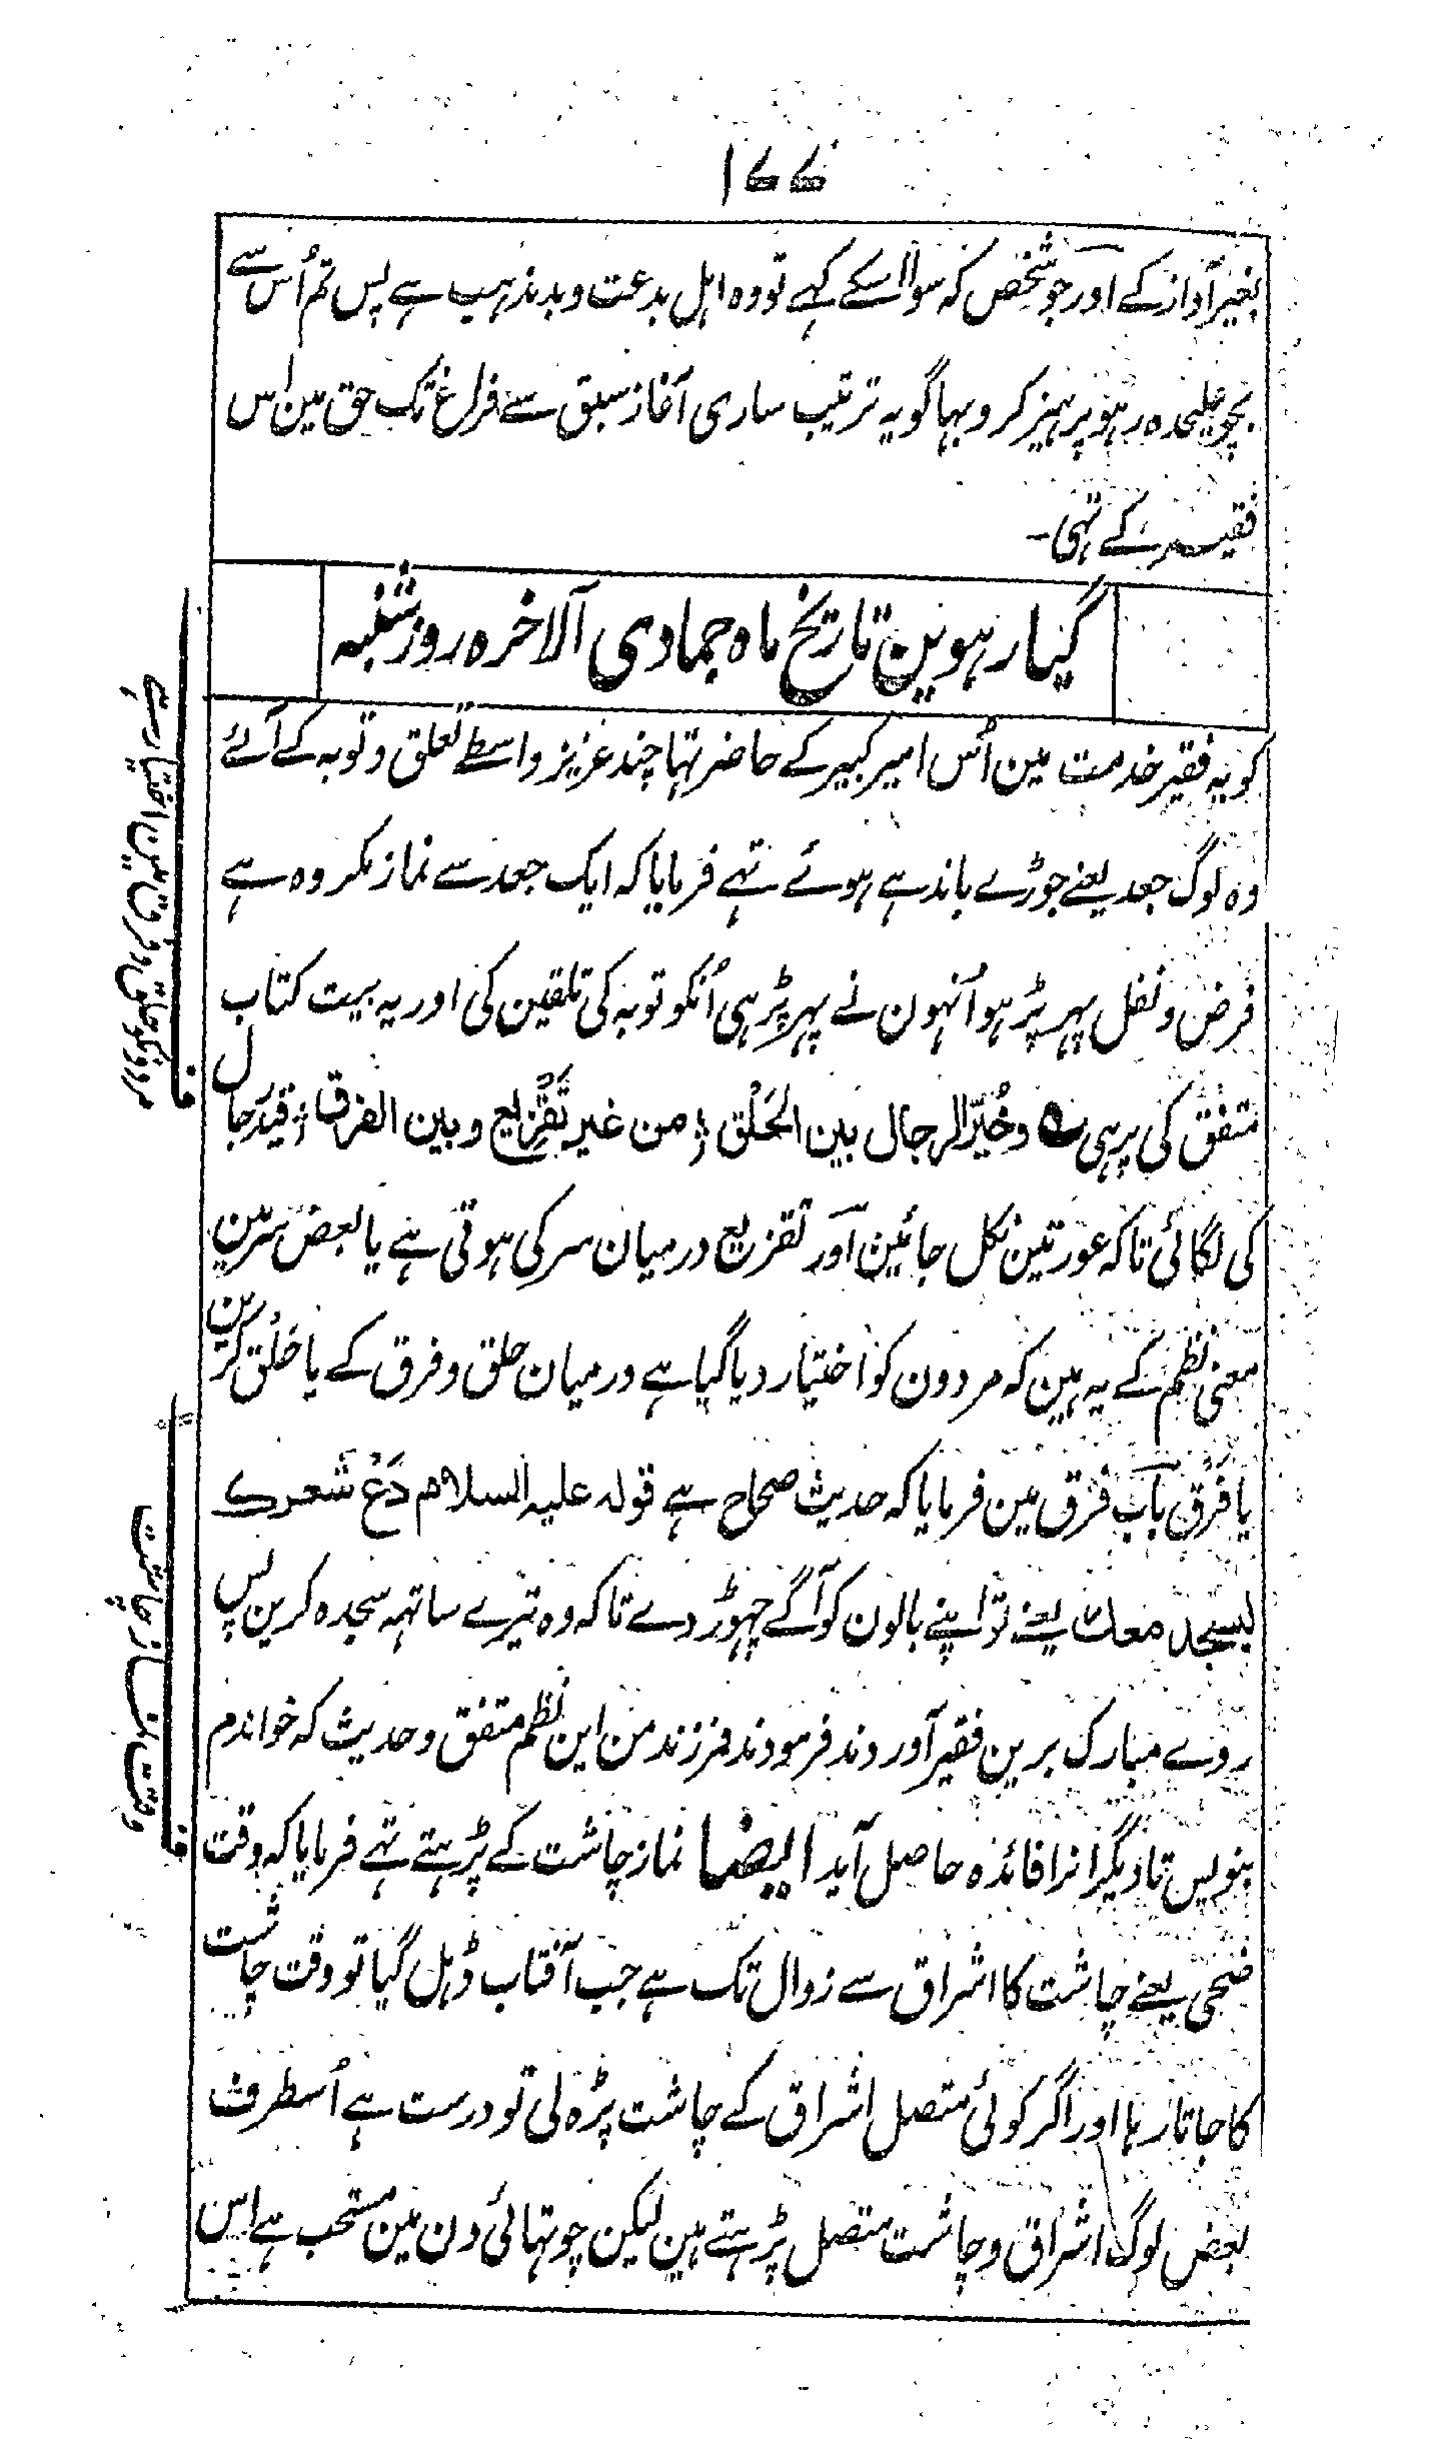 ۱۷۷
بغیر آواز کے اور جو شخص کہ سوا اسکے کہے تو وہ اہل بدعت و بد مذہب ہے پس تم اُس سے
بچو علیحدہ رہو پرہیز کرو یہا گویہ ترتیب ساری آغاز سبق سے فراغ تک حق مین اس
فقیر کے تہی۔
گیارہوین تاریخ ماہ جمادی آلاخرہ روز شنبہ
کو یہ فقیر خدمت مین اُس امیر کبیر کے حاضر تہا چند عزیز واسطے تعلق و توبہ کے آئے
وہ لوگ جعد یعنے جوڑے باندہے ہوئے تہے فرمایا کہ ایک جعد سے نماز مکروہ ہے
فرض و نفل پہر پڑہو اُنہون نے پہر پڑہی اُنکو توبہ کی تلقین کی اور یہ بیت کتاب
متفق کی پڑہی ؎ وخُیِّر الرجال بین الحَلْق ؛ من غیر تَقْزِیع و بین الفرق ؛ قید رجال
کی لگائی تاکہ عورتین نکل جائین اور تقزیع درمیان سر کی ہوتی ہے یا بعض سر مین
معنی نظم کے یہ ہین کہ مردون کو اختیار دیا گیا ہے درمیان حلق و فرق کے یا حَلْق کرین
یا فَرْق باب فرق مین فرمایا کہ حدیث صحاح ہے قولہ علیہ السلام دَعْ شَعرک
لیسجد معک یعنے تو اپنے بالون کو آگے چہوڑ دے تاکہ وہ تیرے ساتہہ سجدہ کرین پس
روے مبارک برین فقیر آوردند فرمودند فرزند من این نظم متفق و حدیث کہ خواندم
بنویس تا دیگرانرا فائدہ حاصل آید ایضا نماز چاشت کے پڑہتے تہے فرمایا کہ وقت
ضحی یعنے چاشت کا اشراق سے زوال تک ہے جب آفتاب ڈہل گیا تو وقت چاشت
کا جاتا رہا اور اگر کوئی متصل اشراق کے چاشت پڑہ لی تو درست ہے اُسطرف
بعض لوگ اشراق و چاشت متصل پڑہتے ہین لیکن چوتہائی دن مین مستحب ہے اس
ف
مردونکو حلق و فرق مین اختیار ہے
ف
وقت نماز چاشت